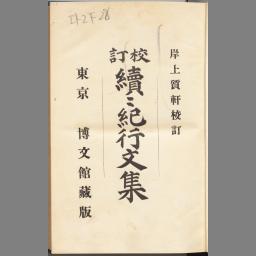 岸上質軒校訂
校訂
續〻紀行文集
東京 博文館藏版